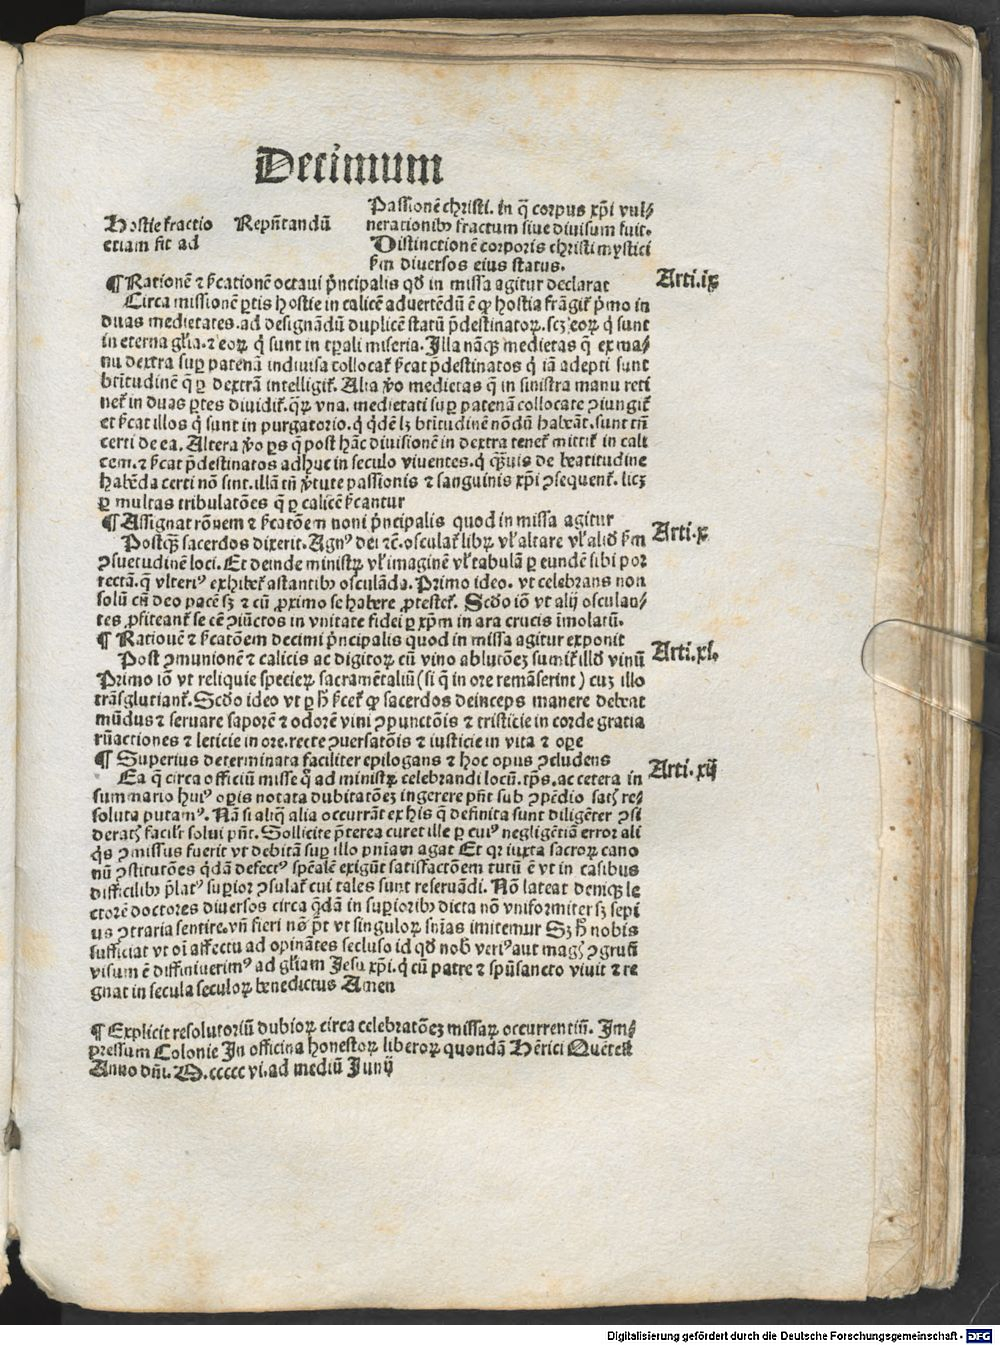 Decimum
Hostie fractio
etiam fit ad
Repñtandũ
Passionẽ christi. in q̃ corpus xp̃i vul⸗
nerationibꝰ fractum siue diuisum fuit.
Distinctionẽ corporis christi mystici
s̃m diuersos eius status.
¶ Rationẽ ⁊ s̃cationẽ octaui p̃ncipalis qd̃ in missa agitur declarat
Arti.ix
Circa missionẽ ꝑtis hostie in calicẽ aduertẽdũ ẽ ꝙ hostia frãgit᷑ p̃mo in
duas medietates. ad designãdũ duplicẽ statũ p̃destinatoꝝ. scꝫ eoꝝ q̇ sunt
in eterna gl̃ia. ⁊ eoꝝ q̇ sunt in tp̃ali miseria. Illa nãqꝫ medietas q̃ ex ma⸗
nu dextra suꝑ patenã indiuisa collocat᷑ s̃cat p̃destinatos q̇ iã adepti sunt
br̃titudinẽ q̃ ꝑ dextrã intelligit᷑. Alia ꝟo medietas q̃ in sinistra manu reti
net᷑ in duas ꝑtes diuidit᷑. q̃ꝝ vna. medietati suꝑ patenã collocate ꝯiungit᷑
et s̃cat illos q̇ sunt in purgatorio. q̇ q̇dẽ lꝫ br̃titudinẽ nõdũ habeãt. sunt tñ
certi de ea. Altera ꝟo ꝑs q̃ post hãc diuisionẽ in dextra tenet᷑ mittit᷑ in cali
cem. ⁊ s̃cat p̃destinatos adhuc in seculo viuentes. q̇ q̃ꝫuis de beatitudine
habẽda certi nõ sint. illã tñ ꝟtute passionis ⁊ sanguinis xp̃i ꝯsequent᷑. licꝫ
ꝑ multas tribulatões q̃ ꝑ calicẽ s̃cantur
¶ Assignat rõnem ⁊ s̃catõem noni p̃ncipalis quod in missa agitur
Arti.x
Postq̃ꝫ sacerdos dixerit. Agnꝰ dei ⁊c̃. osculat᷑ libꝝ vl̃ altare vl̃ aliđ s̃m
ꝯsuetudinẽ loci. Et deinde ministꝝ vl̃ imaginẽ vl̃ tabulã ꝑ eundẽ sibi por
rectã. q̃ vlteriꝰ exhibet᷑ astantibꝰ osculãda. Primo ideo. vt celebrans non
solũ cũ deo pacẽ sꝫ ⁊ cũ ꝓximo se habere ꝓtestet᷑. Scđo iõ vt alij osculan⸗
tes ꝓfiteant᷑ se eẽ ꝯiũctos in vnitate fidei ꝑ xp̃m in ara crucis ĩmolatũ.
¶ Rationẽ ⁊ s̃catõem decimi p̃ncipalis quod in missa agitur exponit
Arti.xi.
Post ꝯmunionẽ ⁊ calicis ac digitoꝝ cũ vino ablutõeꝫ sumit᷑ illđ vinũ
Primo iõ vt reliquie specieꝝ sacramẽtaliũ (si q̃ in ore remãserint) cuꝫ illo
trãsglutiant᷑. Scđo ideo vt ꝑ h̃ s̃cet᷑ ꝙ sacerdos deinceps manere debeat
mũdus ⁊ seruare saporẽ ⁊ odorẽ vini ꝯpunctõis ⁊ tristicie in corde gratia
rũactiones ⁊ leticie in ore. recte ꝯuersatõis ⁊ iusticie in vita ⁊ oꝑe
¶ Superius determinata faciliter epilogans ⁊ hoc opus ꝯcludens
Arti.xij
Ea q̃ circa officiũ misse q̃ ad ministꝝ celebrandi locũ. tp̃s. ac cetera in
summario huiꝰ oꝑis notata dubitatõeꝫ ingerere pñt sub ꝯpẽdio satꝭ re⸗
soluta putamꝰ. Nã si aliq̃ alia occurrãt ex his q̃ definita sunt diligẽter ꝯsi
deratꝭ facilr̃ solui pñt. Sollicite p̃terea curet ille ꝑ cuiꝰ negligẽtiã error ali
q̇s ꝯmissus fuerit vt debitã suꝑ illo pñiam agat Et qꝛ iuxta sacroꝝ cano
nũ ꝯstitutões q̇dã defectꝰ spẽalẽ exigũt satisfactõem tutũ ẽ vt in casibus
difficilibꝰ p̃latꝰ suꝑior ꝯsulat᷑ cui tales sunt reseruãdi. Nõ lateat deniqꝫ le
ctorẽ doctores diuersos circa q̃dã in suꝑioribꝰ dicta nõ vniformiter sꝫ sepi
us ꝯtraria sentire. vñ fieri nõ p̃t vt singuloꝝ sñias imitemur Sꝫ h̃ nobis
sufficiat vt oĩ affectu ad opinãtes secluso id qđ nob̃ veriꝰ aut magꝭ ꝯgruũ
visum ẽ diffiniuerimꝰ ad gl̃iam Jesu xp̃i. q̇ cũ patre ⁊ spũsancto viuit ⁊ re
gnat in secula seculoꝝ benedictus Amen
¶ Explicit resolutoriũ dubioꝝ circa celebratõeꝫ missaꝝ occurrentiũ. Im⸗
pressum Colonie In officina honestoꝝ liberoꝝ quondã Hẽrici Quẽtell
Anno dñi. M. ccccc vi. ad mediũ Junij
Digitalisierung gefördert durch die Deutsche Forschungsgemeinschaft - DFG